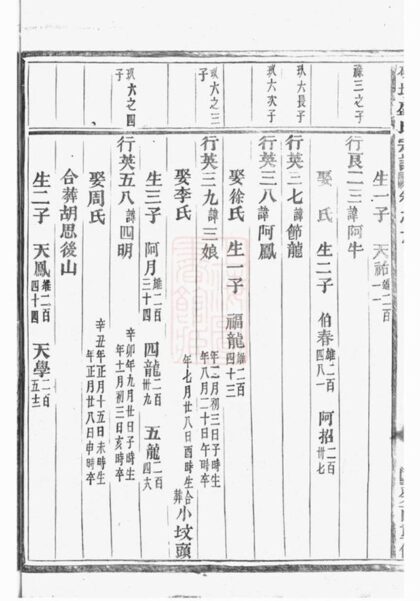 生一子 天祐 維二百一一
祿三之子
行良二三諱阿牛
娶 氏 生二子 伯春 維二百四八一 阿招 二百卅七
玖六長子
行英三七諱節龍
玖六次子
行英三八諱阿鳳
娶徐氏 生一子 福龍 維二百四十三
玖六之三子
行英三九諱三娘 年二月初三日子時生 年八月二十日午時卒
娶李氏 年七月廿八日酉時生 合葬小坟頭
生三子 阿月 維二百三十四 四龍 二百卅九 五龍 二百四六
玖六之四子
行英五八諱四明 辛卯年九月廿日子時生 年十一月初三日亥時卒
娶周氏 辛丑年正月十五日未時生 年正月廿八日申時卒
合葬胡思後山
生二子 天鳳 維二百四十四 天學 二百五十三